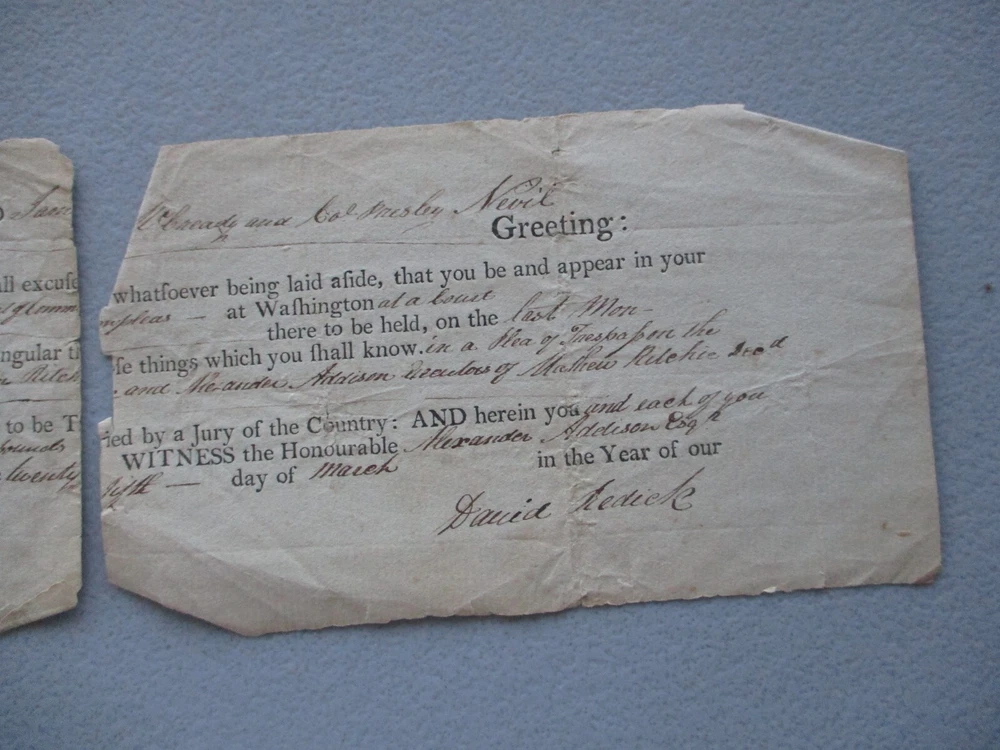 Saml
McCready and Col. Presley Nevil
Greeting:
all excuse
whatsoever being laid aside, that you be and appear in your
of Comm
onpleas — at Waſhington at a Court
there to be held, on the last Mon-
ingular th
oſe things which you ſhall know. in a Plea of Treſpaſs on the
Ritch
and Alexander Addison Executors of Mathew Ritchie Decd
to be T
ried by a Jury of the Country: AND herein you and each of you
pounds
WITNESS the Honourable Alexander Addison Esqr
twenty
fifth — day of March in the Year of our
David Redick